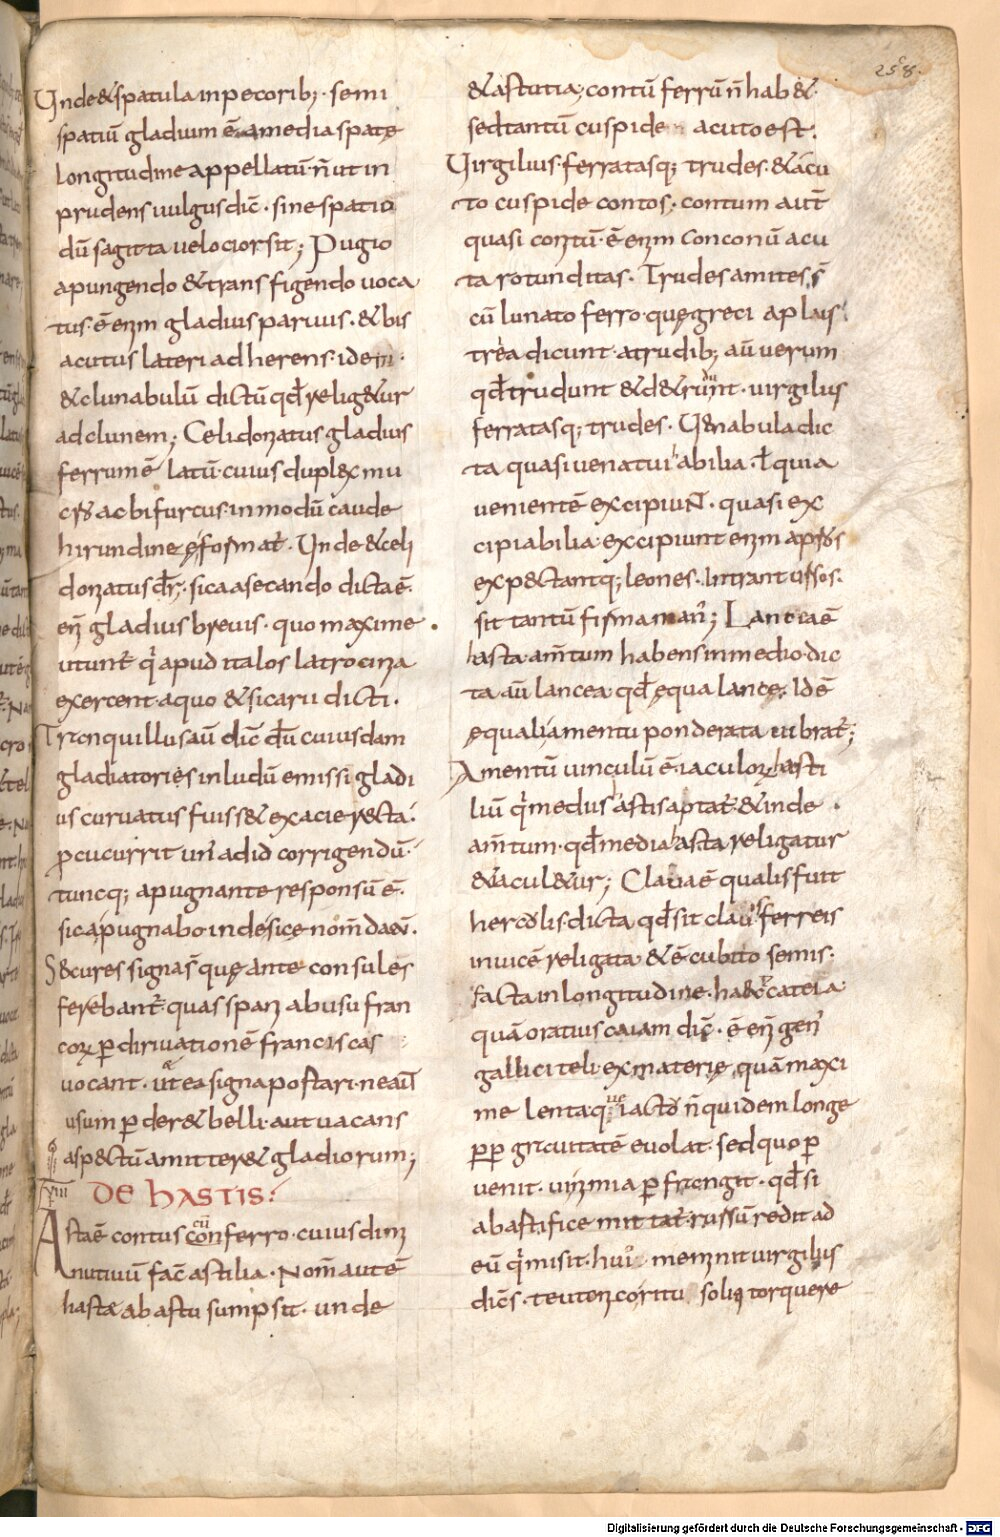 258.
Unde&spatula inpecorib; · semi
spatiū gladium ē amedia spatę
longitudine appellatū· n̄ ut in
prudens uulgus dic̄ · sine spatio
dū sagitta uelocior sit; Pugio
apungendo &trans figendo uoca
tus· ē enim gladius paruus· & bis
acutus lateri ad herens· idem ·
&clunabulū dictū qđ relig&ur
ad clunem; Celidonatus gladius
ferrum ē latū· cuius duplex mu
cro ac bifurcus· inmodū caude
hirundine ęformat̄ · Unde &celi
donatus dr̄; · sica asecando dicta ē·
en̄ gladius breuis · quo maxime
utunt̄ qi apud italos latrocinia
exercent· aquo &sicarii dicti·
Tranquillus aū dic̄ dū cuiusdam
gladiatoriẹs inludū emissi gladi
us curuatus fuiss& ex acie recta·
ꝓcucurrit un̄ ad id corrigendū·
tuncq; apugnante responsū ē·
sica pugnabo· inde sicę nom̄ daen̄·
S&cures signas̄ quę ante consules
ferebant̄· quas spani abusu fran
corꝝ ꝑ diriuationē franciscas
uocant· ut ea signa portari· ne aut̄
usum ꝑder& belli· aut uacans
aspectū amitter& gladiorum;
VIII DE hASTIS:
Asta ē contus cū conferro· cuius dimi
nutiuū fac̄ astilia· Nom̄ autē
hasta ab astu sumpsit· unde
&astutia; contū ferrū n̄ hab&·
sed tantū cuspide acuto est·
Uirgilius· ferratasq; trudes· &acu
to cuspide contos; contum aut̄
quasi contū· ē enim conconū acu
ta rotunditas· Trudes amites s̄
cū lunato ferro· quę greci aplus
trea dicunt· atrudib; aū uerum
qđ trudunt &d&runt· uirgilius
ferratasq; trudes· Uenabula dic
ta quasi uenatui habilia· ł quia
uenientē excipiunt̄ · quasi ex
cipiabilia· excipiunt enim apros
expectantq; leones· Intrant ursos·
sit tantū firma man'; Lancia ē
hasta· am̄tum habens inmedio· dic
ta aū lancea qđ ęqua lance; Idē
ęquali amentu ponderata uibrat̄;
Amentū uinculū ē iaculorꝝ hasti
liū qi medus hastis aptat̄· &inde ·
am̄tum· qđ media hasta religatur
&iacul&ur; Claua ē qualis fuit
herculis· dicta qđ sit clauis ferreis
inuicē religata &ē cubito semis·
facta in longitudine· haec & catera·
quā oratius caiam dic̄· ē en̄ gen'
gallici teli· ex materię quā maxi
me lenta· que iacto n̄ quidem longe
ꝑꝑ grauitatē euolat· sed quo ꝑ
uenit· ui nimia ꝑfrangit· qđ si
ab astifice mittat̄· russū redit ad
eū qi misit· hui' meminit uirgilius
dic̄s· teutenicoritu soliq torquere
Digitalisierung gefördert durch die Deutsche Forschungsgemeinschaft - DFG